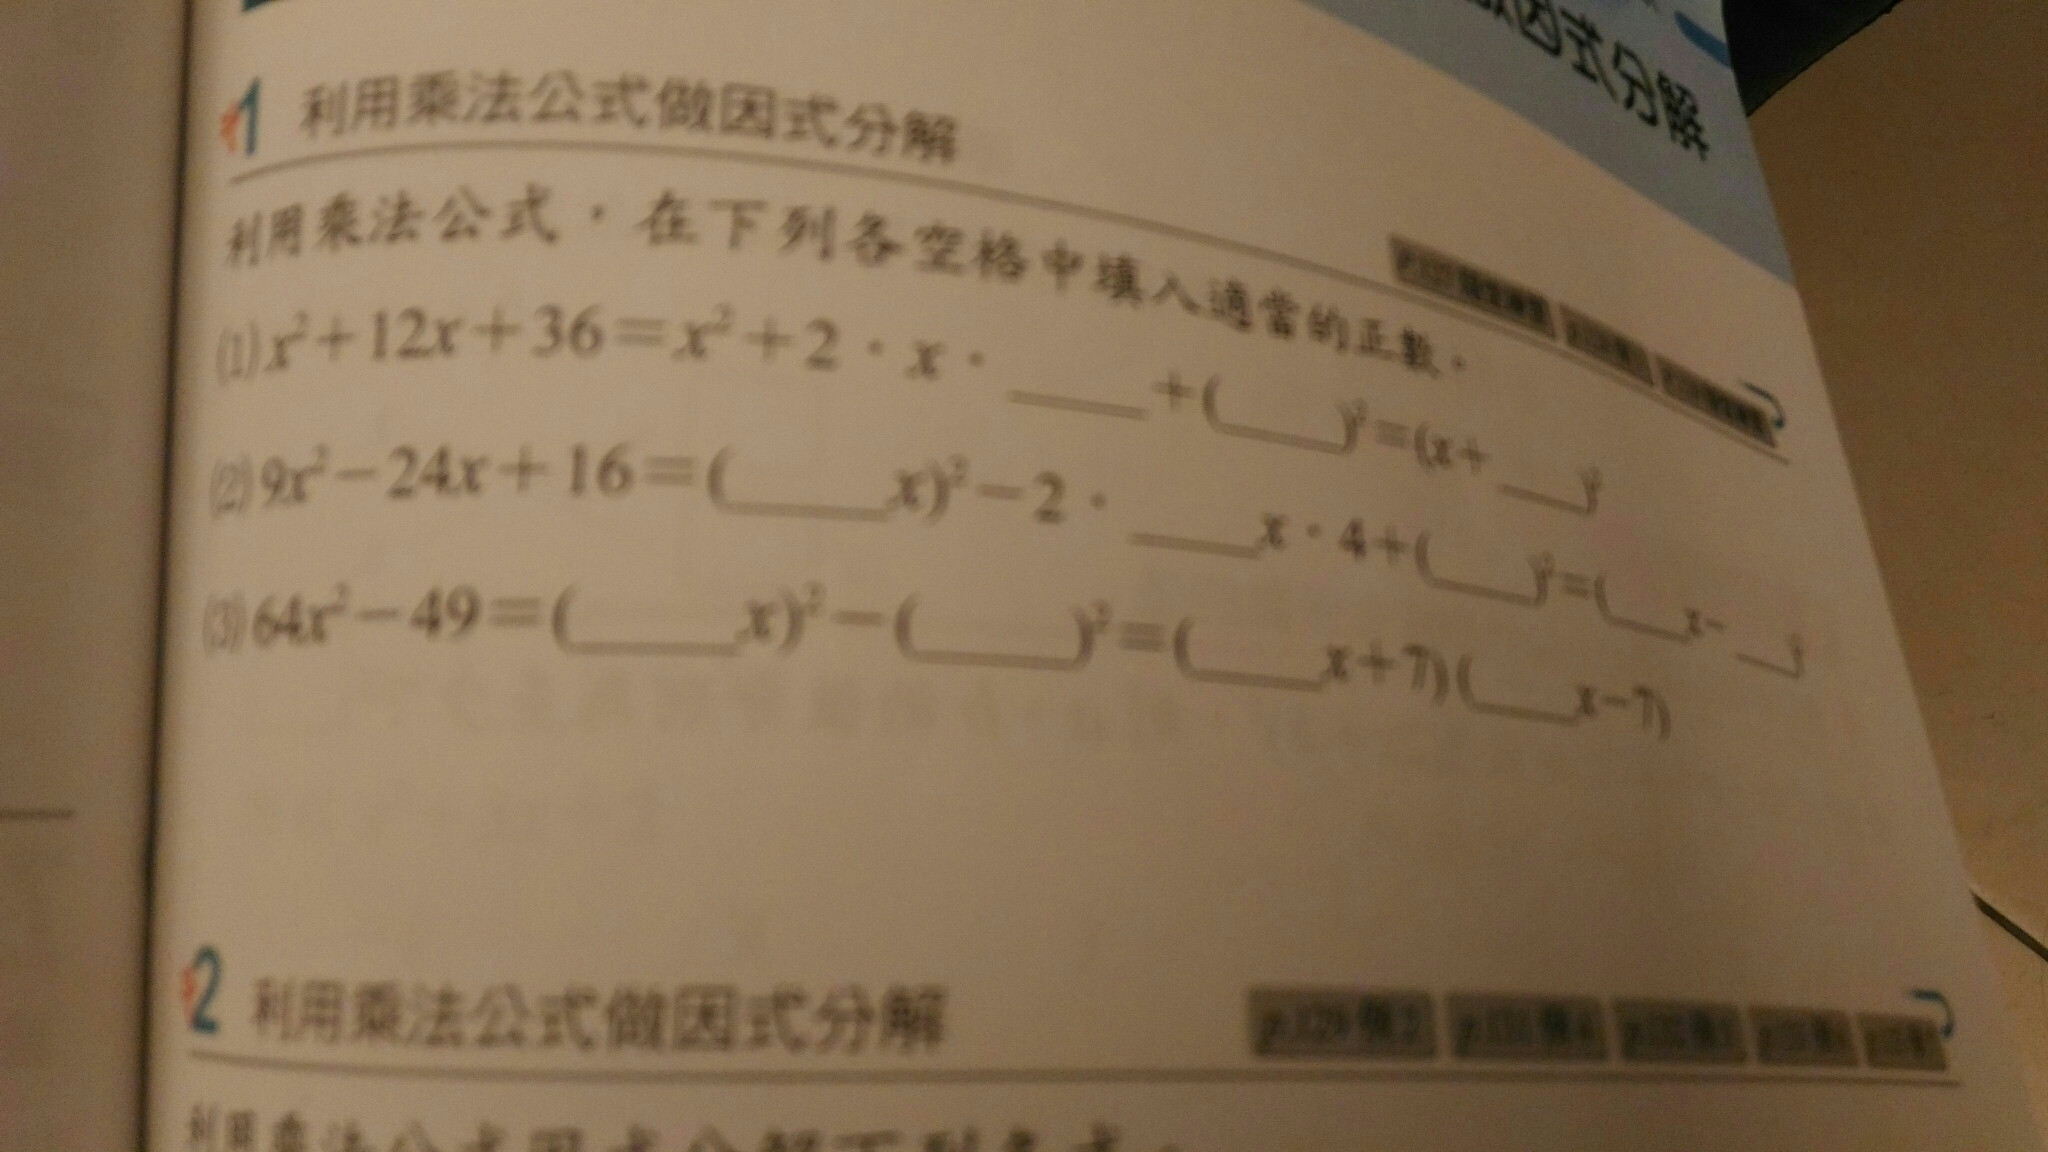 因式分解
1 利用乘法公式做因式分解
利用乘法公式,在下列各空格中填入適當的正數。
(1) x²+12x+36=x²+2·x·____+(____)²=(x+____)²
(2) 9x²-24x+16=(____x)²-2·____x·4+(____)²=(____x-____)²
(3) 64x²-49=(____x)²-(____)²=(____x+7)(____x-7)
2 利用乘法公式做因式分解
利用乘法公式因式分解下列各式。